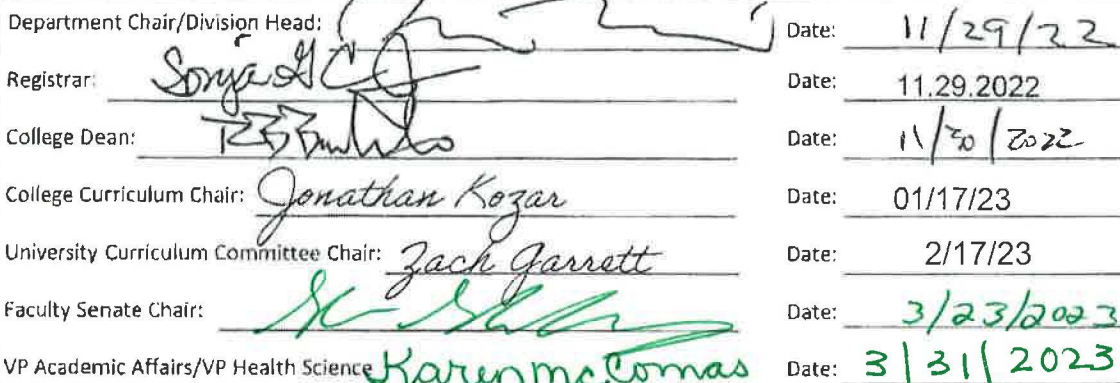 Department Chair/Division Head: Date: 11/29/22
Registrar: Sonja G Date: 11.29.2022
College Dean: Date: 11/30/2022
College Curriculum Chair: Jonathan Kozar Date: 01/17/23
University Curriculum Committee Chair: Zach Garrett Date: 2/17/23
Faculty Senate Chair: Date: 3/23/2023
VP Academic Affairs/VP Health Science Karen McComas Date: 3|31|2023